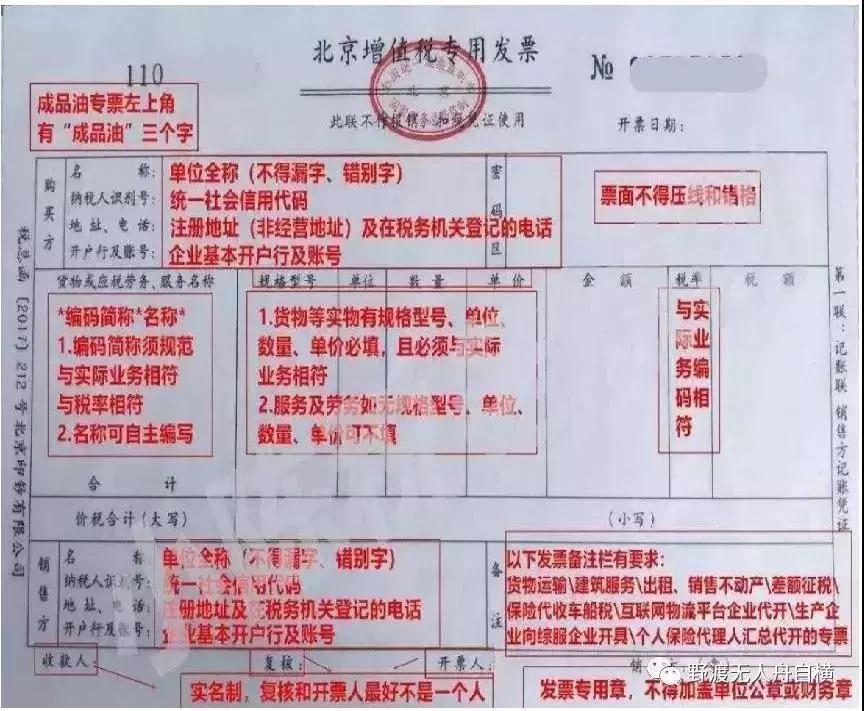 北京增值税专用发票
110
№
北京
此联不作报销、扣税凭证使用
开票日期：
成品油专票左上角
有“成品油”三个字
购买方
名 称： 单位全称（不得漏字、错别字）
纳税人识别号： 统一社会信用代码
地址、电话： 注册地址（非经营地址）及在税务机关登记的电话
开户行及账号： 企业基本开户行及账号
密码区
票面不得压线和错格
货物或应税劳务、服务名称 规格型号 单位 数量 单价 金额 税率 税额
*编码简称*名称*
1.编码简称须规范
与实际业务相符
与税率相符
2.名称可自主编写
1.货物等实物有规格型号、单位、
数量、单价必填，且必须与实际
业务相符
2.服务及劳务如无规格型号、单位、
数量、单价可不填
与实际业务编码相符
合 计
价税合计（大写） （小写）
销售方
名 称： 单位全称（不得漏字、错别字）
纳税人识别号： 统一社会信用代码
地址、电话： 注册地址及在税务机关登记的电话
开户行及账号： 企业基本开户行及账号
备注
以下发票备注栏有要求：
货物运输\建筑服务\出租、销售不动产\差额征税\
保险代收车船税\互联网物流平台企业代开\生产企
业向综服企业开具\个人保险代理人汇总代开的专票
收款人： 复核： 开票人： 销
实名制，复核和开票人最好不是一个人
发票专用章，不得加盖单位公章或财务章
税总函〔2017〕212号北京印钞有限公司
第一联：记账联 销售方记账凭证
野渡无人舟自横